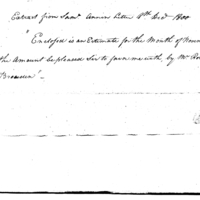 Extract from Saml Annin Letter 8th Decr 1800
"Enclosed is an Estimate for the Month of
the Amount be pleased Sir to favor me with, by Mr